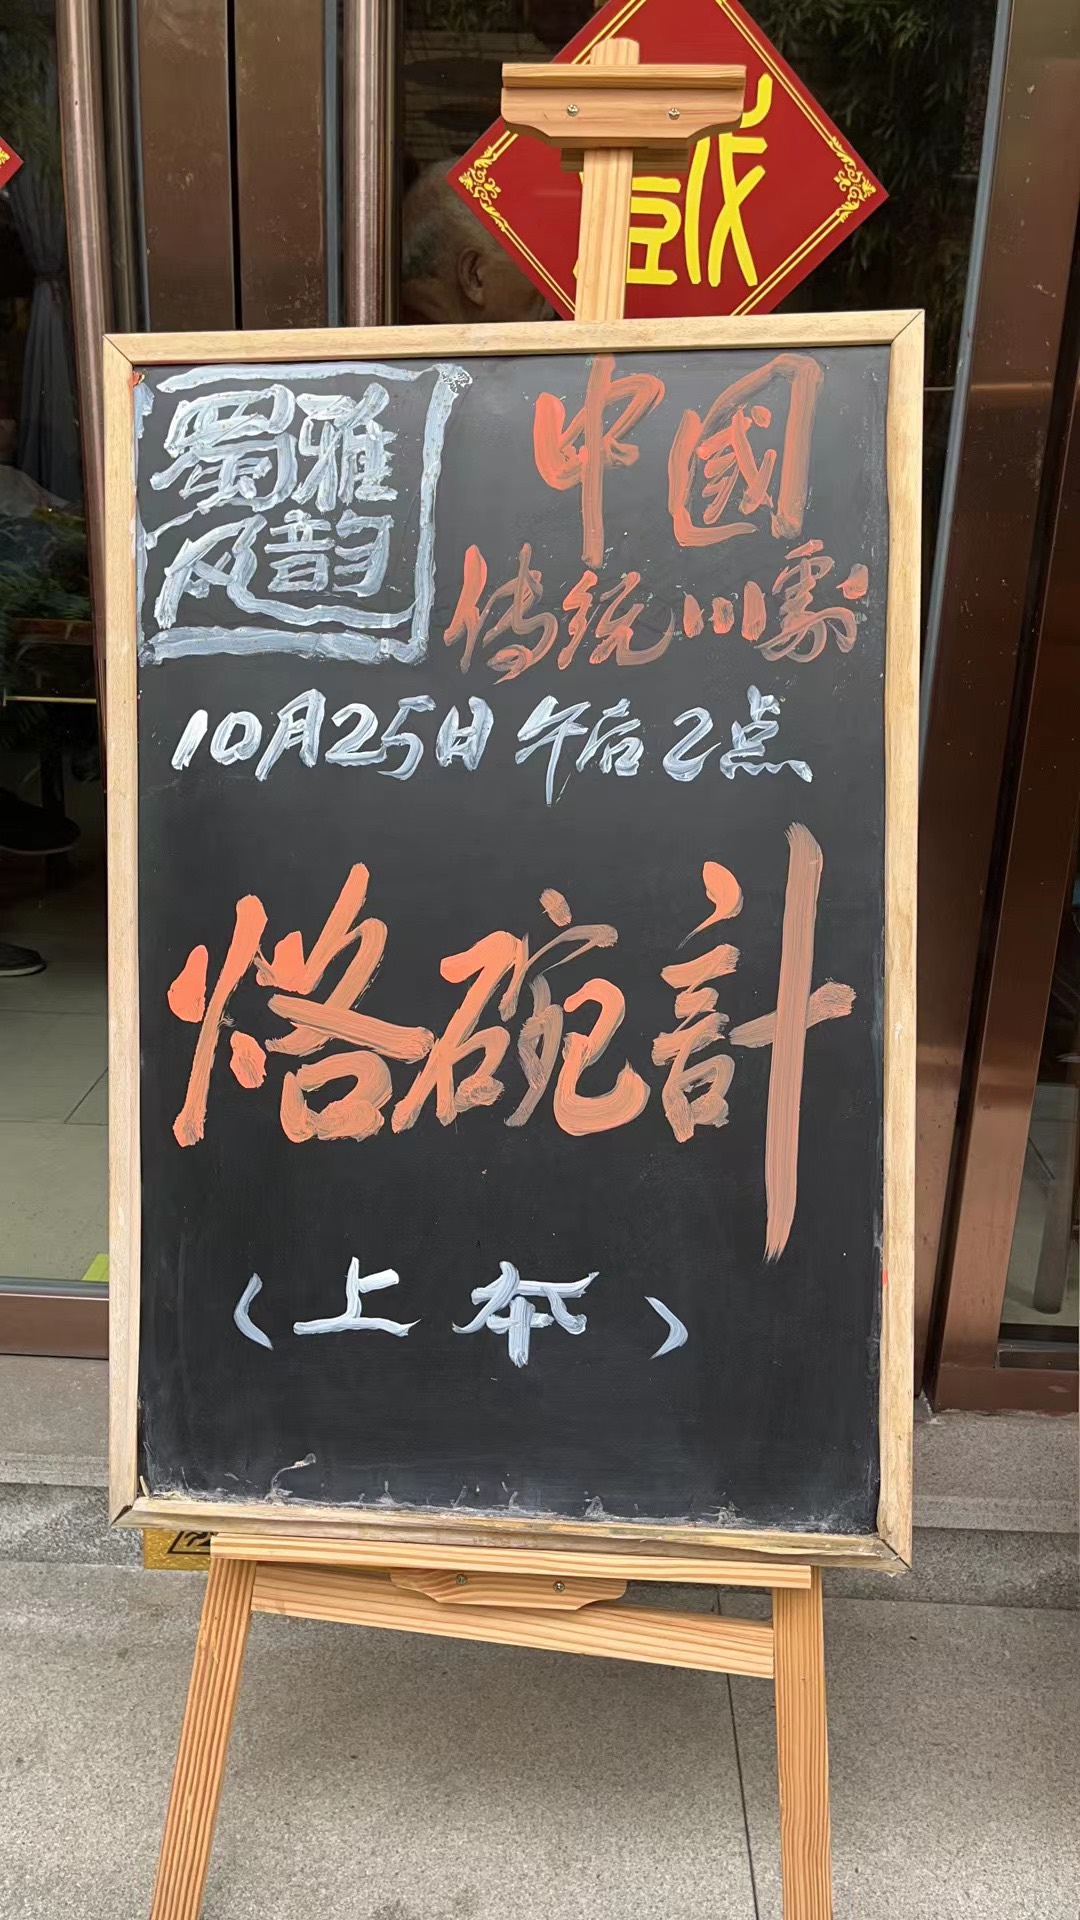 戲
蜀雅
风韵
中國
传统川劇
10月25日午后2点
烙碗計
（上本）